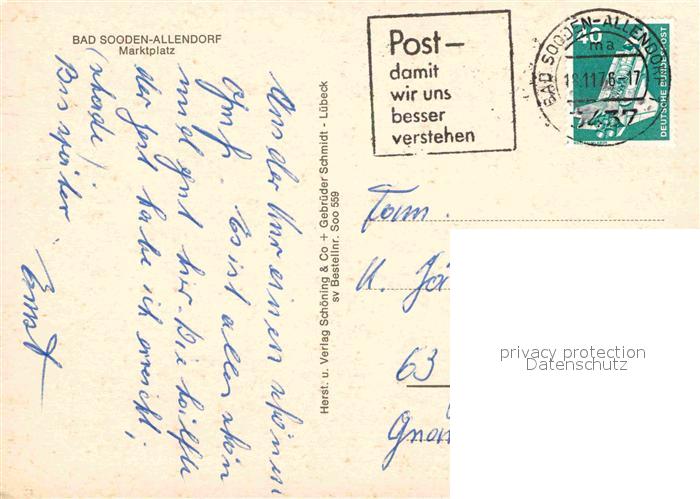 BAD SOODEN-ALLENDORF
Marktplatz
Post –
damit
wir uns
besser
verstehen
BAD SOODEN-ALLENDORF
ma
18.11.76-17
3437
40
DEUTSCHE BUNDESPOST
Aus der Kur einen schönen
Gruß. Es ist alles schön
und gut hier. Die Hälfte
der Zeit habe ich erreicht,
(schade)
Bis später
Ernst
Herst. u. Verlag Schöning & Co + Gebrüder Schmidt - Lübeck
sv Bestellnr. Soo 559
Fam.
K.
63
privacy protection
Datenschutz